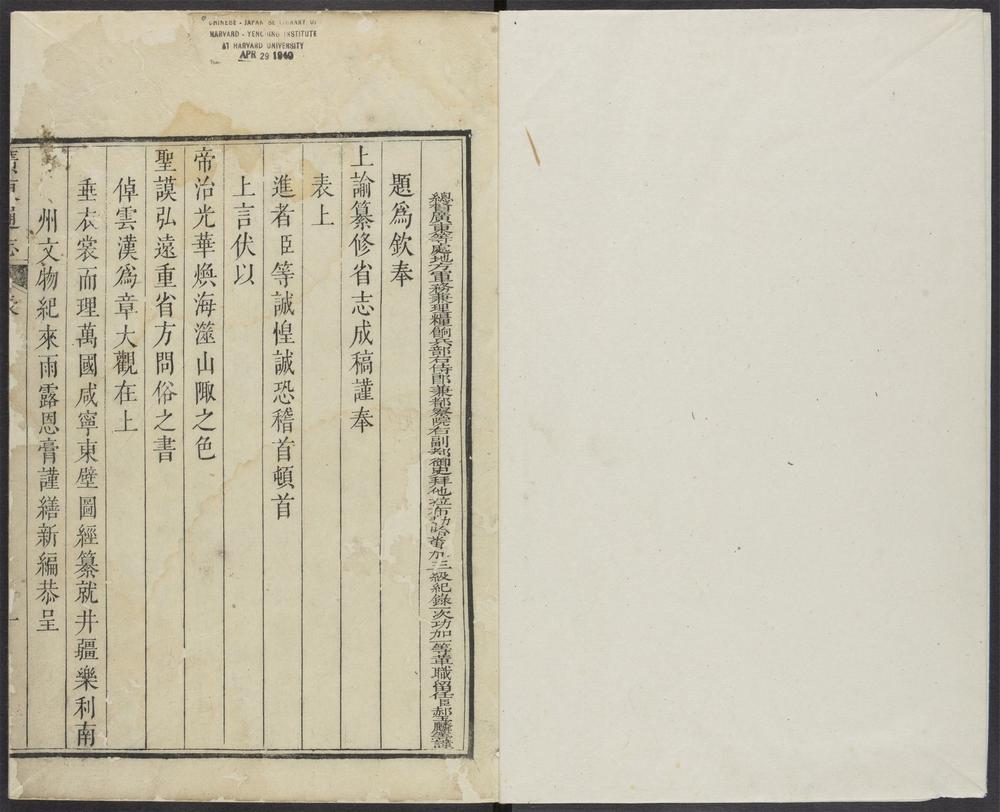 CHINESE - JAPANESE LIBRARY OF
HARVARD - YENCHING INSTITUTE
AT HARVARD UNIVERSITY
APR 29 1940
總督廣東等處地方軍務兼理糧餉兵部右侍郎兼都察院右副都御史拜他拉布勒哈番加三級紀錄一次功加一等革職留任臣郝玉麟謹
題爲欽奉
上諭纂修省志成稿謹奉
表上
進者臣等誠惶誠恐稽首頓首
上言伏以
帝治光華煥海澨山陬之色
聖謨弘遠重省方問俗之書
倬雲漢爲章大觀在上
垂衣裳而理萬國咸寧東壁圖經纂就井疆樂利南
州文物紀來雨露恩膏謹繕新編恭呈
通志 表 一